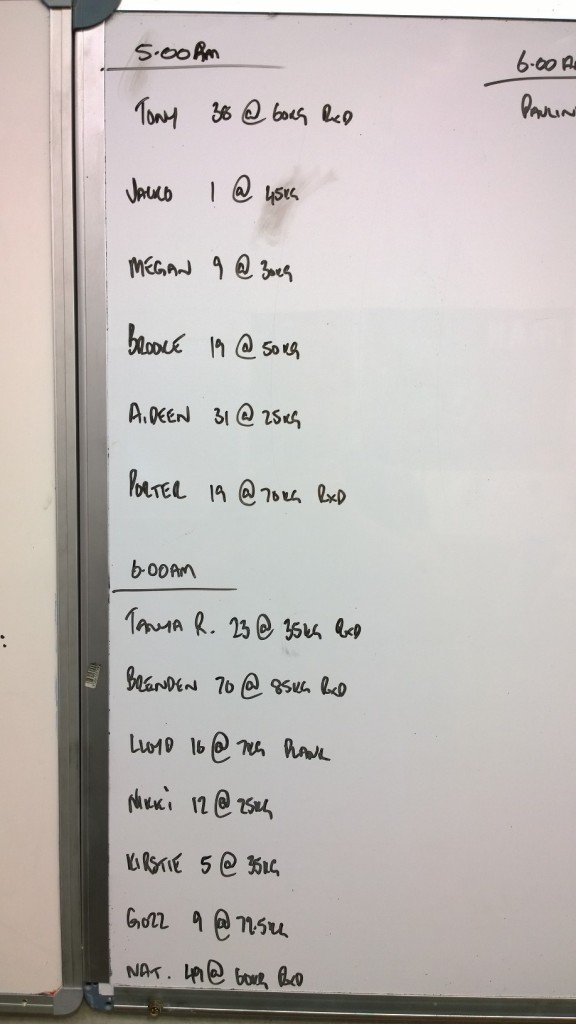 5.00AM
TONY 38 @ 60KG RXD
1 @ 45KG
MEGAN 9 @ 30KG
BROOKE 19 @ 50KG
AIDEEN 31 @ 25KG
PORTER 19 @ 70KG RXD
6.00AM
TANYA R. 23 @ 35KG RXD
BRENDEN 70 @ 85KG RXD
LLOYD 16 @ PLANK
NIKKI 12 @ 25KG
KIRSTIE 5 @ 35KG
GOZZ 9 @ 72.5KG
NAT. 49 @ 60KG RXD
6.00 A
PAULIN